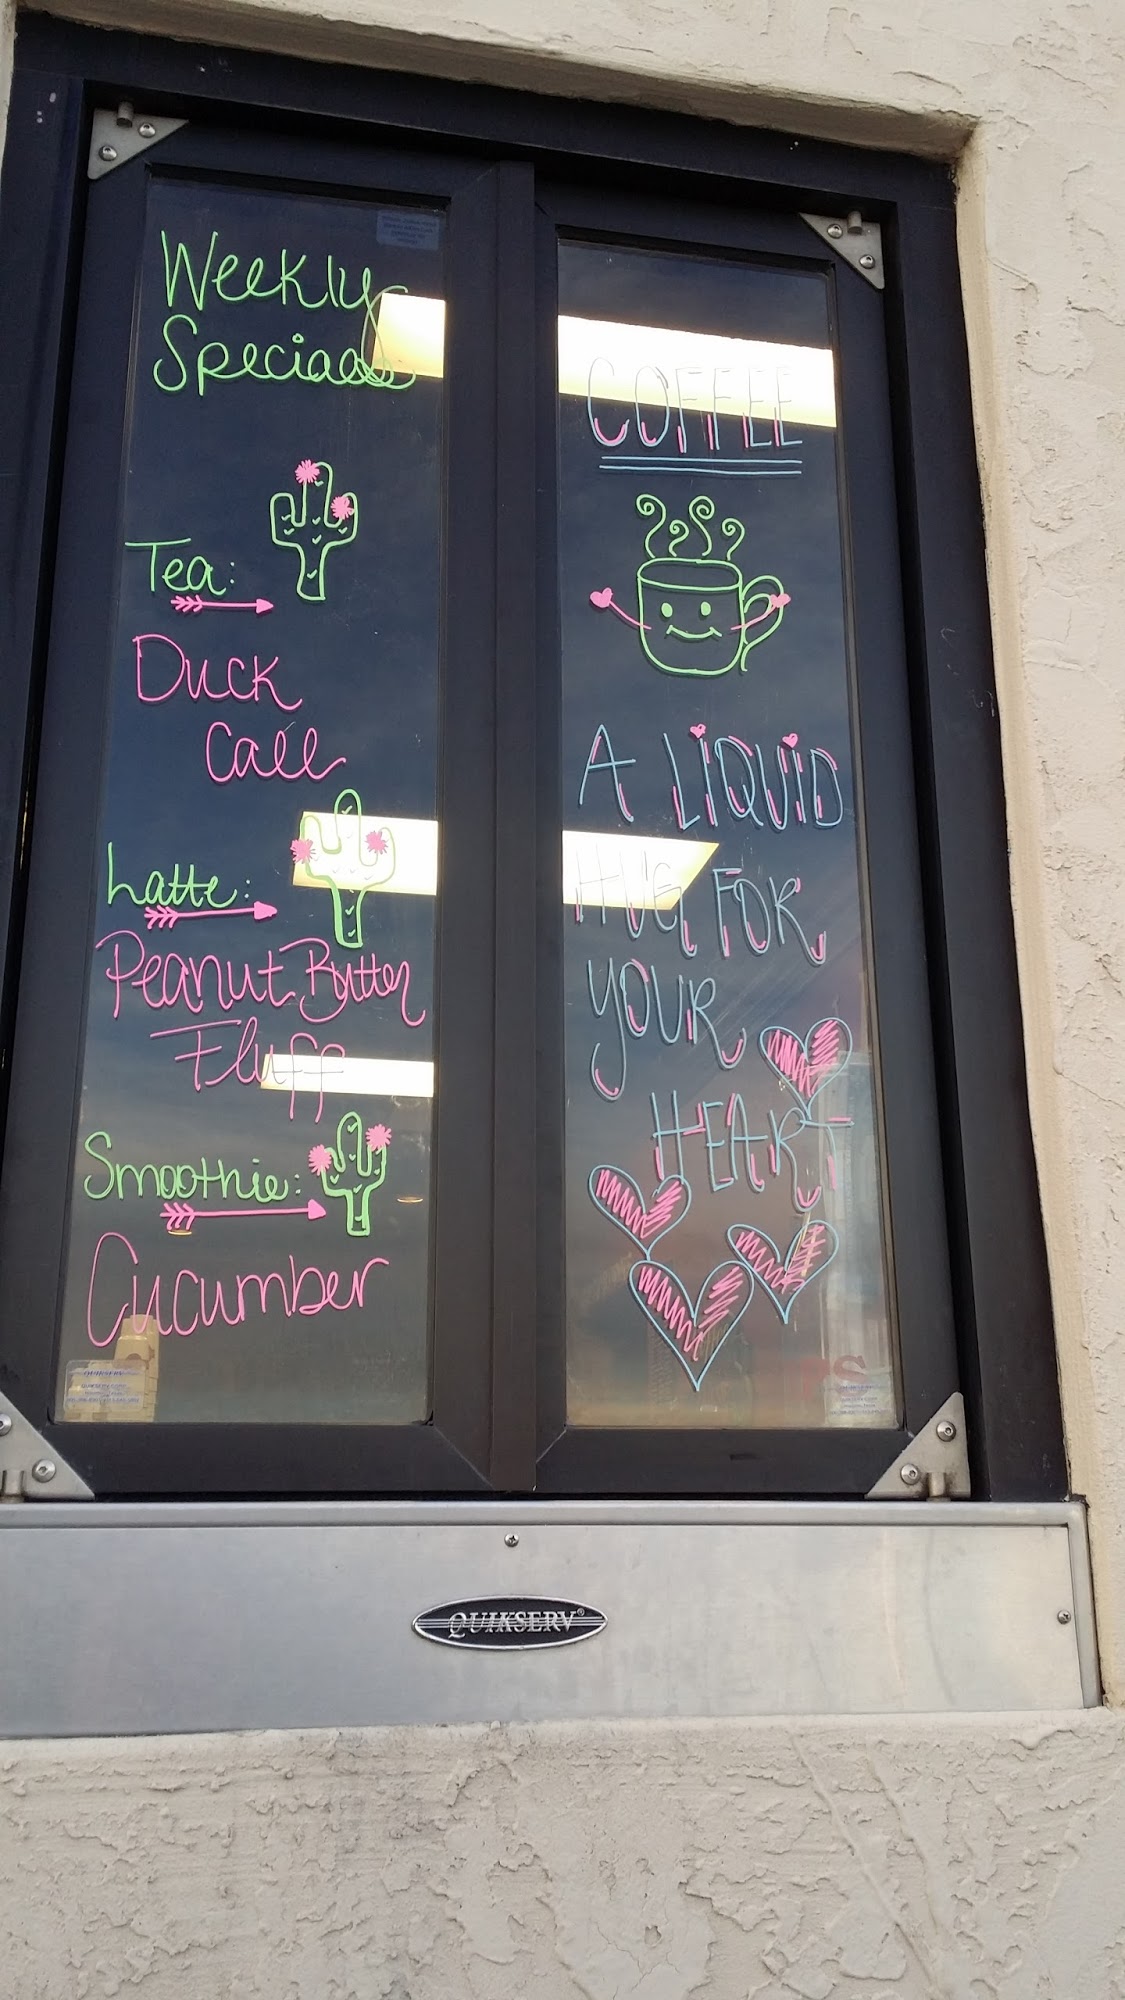 Weekly
Specials
Tea:
Duck
Call
Latte:
Peanut Butter
Fluff
Smoothie:
Cucumber
COFFEE
A LIQUID
HUG FOR
YOUR
HEART
QUIKSERV
QUIKSERV®